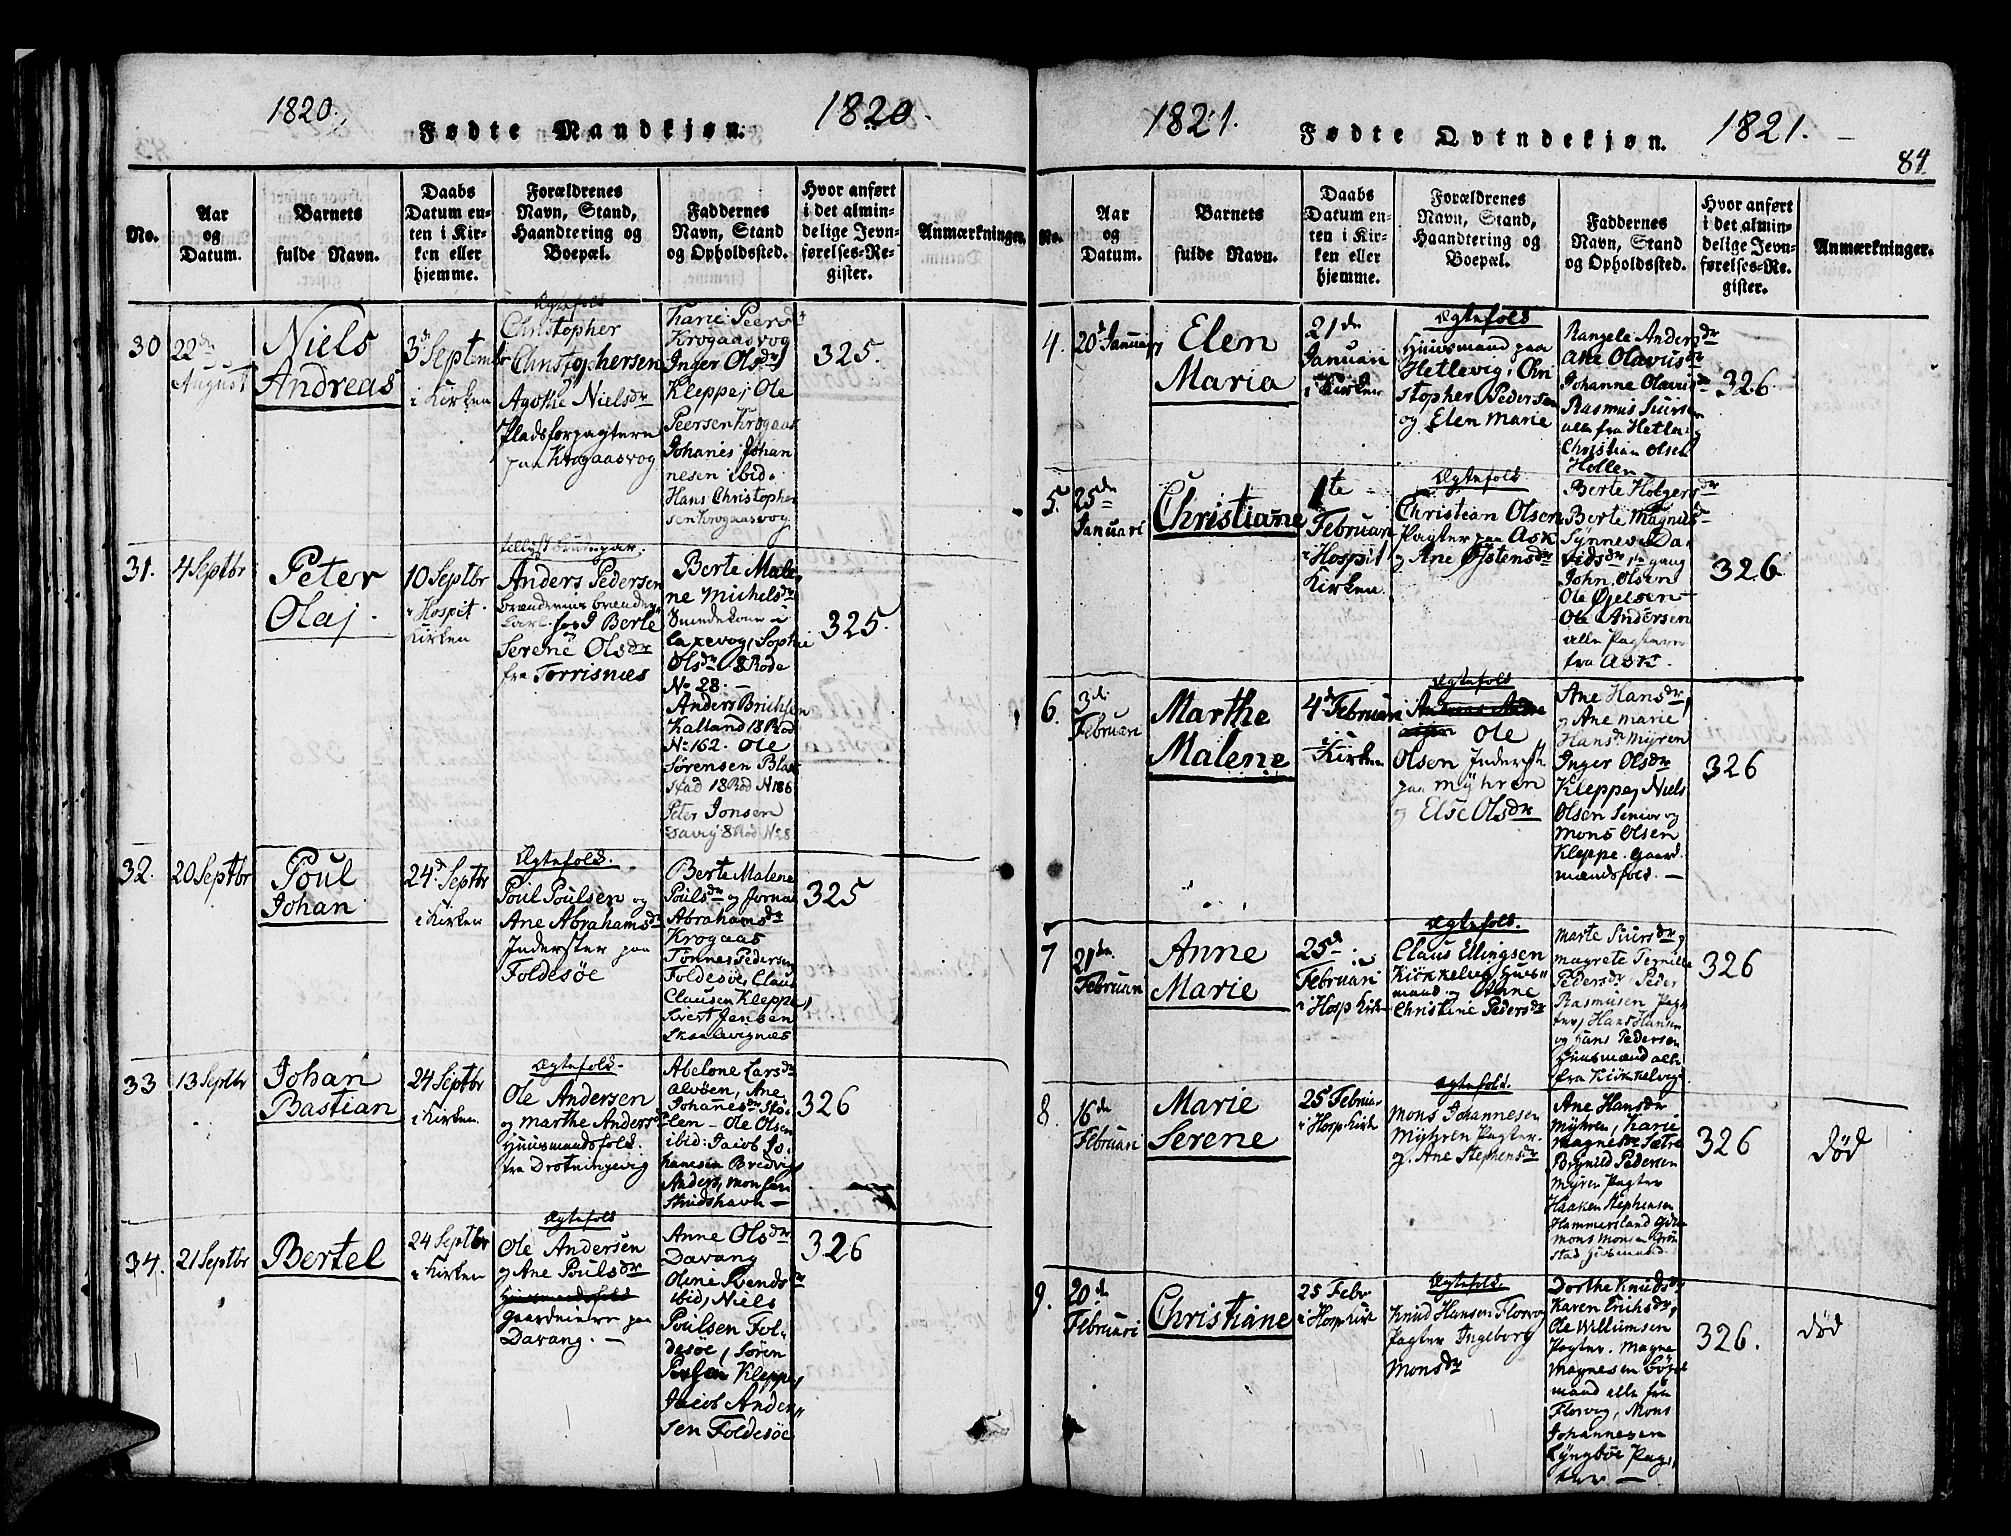 1820.
Fødte Mandkjøn.
1820.
No.
Aar
og
Datum.
Barnets
fulde Navn.
Daabs
Datum en-
ten i Kir-
ken eller
hjemme.
Forældrenes
Navn, Stand,
Haandtering og
Boepæl.
Faddernes
Navn, Stand
og Opholdssted.
Hvor anført
i det almin-
delige Jevn-
førelses-Re-
gister.
Anmærkninger.
30
22de
August
Niels
Andreas
3d Septembr
i Kirken
Ægtefolk
Christopher
Christophersen
Agothe Nielsdr
Pladsforpagtere
paa Krogaasvog
Karie Peersdr
Krogaasvog
Inger Olsdr
Kleppe, Ole
Peersen Krogaas
Johanes Johan
nesen ibid.
Hans Christopher
sen Krogaasvog
325.
31.
4 Septbr
Peter
Olaj.
10 Septbr
i Hospit.
Kirken
Anders Pedersen
Berte
Serene Olsdr
fra Torrisnæs
Berte Male,
ne Michelsdr
i
Laxevog, Sophie
Olsdr 8 Rode
No 28.
Anders Brichsen
Kalland 18 Rod
No 162. Ole
Sørensen Blae
stad 18 Rod N 186
Peter Jonsen
8 Rod N 28
325.
32.
20 Septbr
Poul
Johan
24d Septbr
i Kirken
Ægtefolk.
Poul Poulsen og
Ane Abrahamsdr
Inderster paa
Foldesøe
Berte Malene
Poulsdr og Jorna
Abrahamsdr
Krogaas
Tonnes Pedersen
Foldesøe, Claus
Clausen Kleppe,
Sivert Jensen
Skaalevignæs
325
33
13 Septbr
Johan
Bastian
24 Septbr
i Kirken
Ægtefolk.
Ole Andersen
og Marthe Andersdr
Huusmandsfolk.
fra Drotningevig
Abelone Larsdr
Alvøen, Ane
Johannesdr Stø,
len - Ole Olsen
ibid: Jacob Jo,
hanesen Bredvig
Anders Monsen
Strudshavn
326
34.
21 Septbr
Bertel
24 Septbr
i Kirken
Ægtefolk
Ole Andersen
og Ane Poulsdr
Huusmandsfolk
Gaardmænd paa
Davang.
Anne Olsdr
Davang
Oline Svendsdr
ibid, Niels
Poulsen Fol-
desøe, Søren
Kleppe,
Jacob Ander,
sen Foldesøe
326
1821.
Fødte Qvindekjøn.
1821.
84
No.
Aar
og
Datum.
Barnets
fulde Navn.
Daabs
Datum en-
ten i Kir-
ken eller
hjemme.
Forældrenes
Navn, Stand,
Haandtering og
Boepæl.
Faddernes
Navn, Stand
og Opholdssted.
Hvor anført
i det almin-
delige Jevn-
førelses-Re-
gister.
Anmærkninger.
4.
20d Januari
Elen
Maria
21de
Januari
i Kirken
Ægtefolk
Huusmand paa
Hetlevig, Chri
stopher Pedersen
og Elen Marie
Rangele Andersdr
Ane Olavusdr
Johanne Olavisdr
Rasmus Siursen
alle fra Hetlevig
Christian Olsen
Hollen
326
5.
25de
Januari
Christiane
1te
Februari
i Hospit
Kirken
Ægtefolk
Christian Olsen
Pagter paa Ask
og Ane Østensdr
Berte Holgersdr
Berte Magnusdr
Synneve Da-
vidsdr 1te gang
John Olsen
Ole Ojelsen
Ole Andersen
alle Pagtere
fra Ask.
326
6.
3de
Februari
Marthe
Malene
4de Februari
i Kirken
Ægtefolk
Ole
Olsen Inderst
paa Myhren
og Else Olsdr
Ane Hansdr,
og Ane Marie
Hansdr Myren
Inger Olsdr
Kleppe, Niels
Olsen Senior og
Mons Olsen
Kleppe. Gaard-
mændsfolk.
326
7
21de
Februari
Anne
Marie
25d
Februari
i Hosp Kirk
Ægtefolk.
Claus Ellingsen
Kiøkkelvig Huus,
mand og Anne
Christine Pedersdr
Marte Siursdr,
Magrete Pernille
Pedersdr Peder
Rasmusen Pag-
ter, Hans Hansen
og Hans Pedersen
Huusmænd alle
fra Kiøkkelvig
326
8.
16de
Februari
Marie
Serene
25 Februar
i Hosp Kirk
Ægtefolk.
Mons Johannesen
Myhren Pagter.
og Ane Stephensdr
Ane Hansdr
Myhren, Karie
Magnesdr Sætre
Brynild Pedersen
Myren Pagter
Haaken Stephensen
Hammersland
Mons Monsen Grøn
stad Huusmænd.
326
død
9.
20de
Februari
Christiane
25 Febr
i Hosp Kirk
Ægtefolk.
Knud Hansen Florvog
Pagter Ingeborg
Monsdr
Dorthe Knudsdr
Karen Erichsdr,
Ole Willumsen
Pagter. Magne
Magnesen
mand alle fra
Florvog, Mons
Johannesen
Lyngbøe Pag,
ter
326.
død